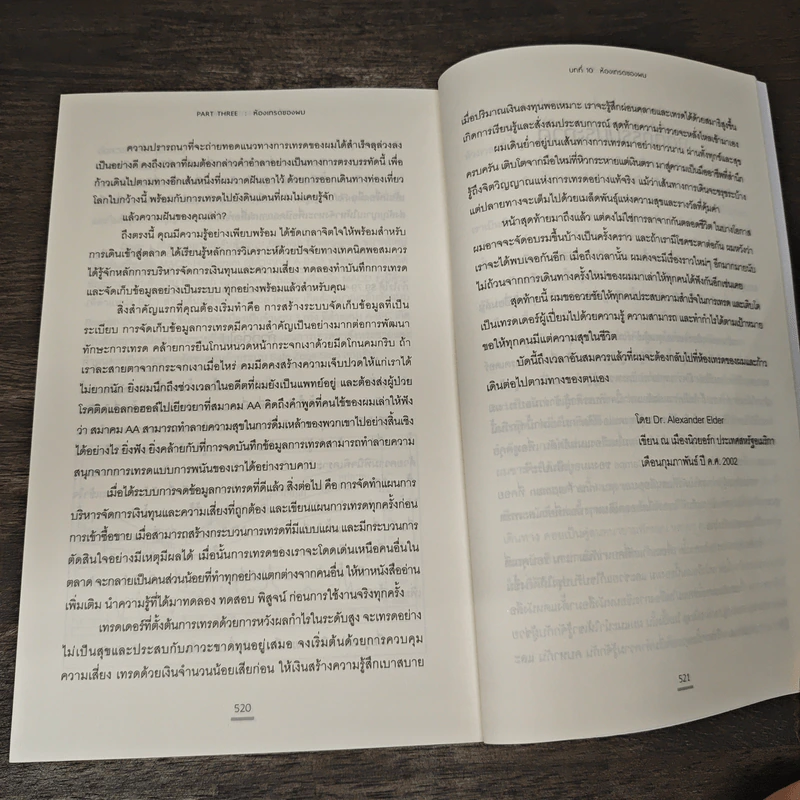 PART THREE | ห้องเทรดของผม
ความปรารถนาที่จะถ่ายทอดแนวทางการเทรดของผมได้สำเร็จลุล่วงลง
เป็นอย่างดี คงถึงเวลาที่ผมต้องกล่าวคำอำลาอย่างเป็นทางการตรงบรรทัดนี้ เพื่อ
ก้าวเดินไปตามทางอีกเส้นหนึ่งที่ผมวาดฝันเอาไว้ ด้วยการออกเดินทางท่องเที่ยว
โลกใบกว้างนี้ พร้อมกับการเทรดไปยังดินแดนที่ผมไม่เคยรู้จัก
แล้วความฝันของคุณเล่า?
ถึงตรงนี้ คุณมีความรู้อย่างเพียบพร้อม ได้ขัดเกลาจิตใจให้พร้อมสำหรับ
การเดินเข้าสู่ตลาด ได้เรียนรู้หลักการวิเคราะห์ด้วยปัจจัยทางเทคนิคพอสมควร
ได้รู้จักหลักการบริหารจัดการเงินทุนและความเสี่ยง ทดลองทำบันทึกการเทรด
และจัดเก็บข้อมูลอย่างเป็นระบบ ทุกอย่างพร้อมแล้วสำหรับคุณ
สิ่งสำคัญแรกที่คุณต้องเริ่มทำคือ การสร้างระบบจัดเก็บข้อมูลที่เป็น
ระเบียบ การจัดเก็บข้อมูลการเทรดมีความสำคัญเป็นอย่างมากต่อการพัฒนา
ทักษะการเทรด คล้ายการยืนโกนหนวดหน้ากระจกเงาด้วยมีดโกนคมกริบ ถ้า
เราละสายตาจากกระจกเงาเมื่อไหร่ คมมีดคงสร้างความเจ็บปวดให้แก่เราได้
ไม่ยากนัก ยิ่งผมนึกถึงช่วงเวลาในอดีตที่ผมยังเป็นแพทย์อยู่ และต้องส่งผู้ป่วย
โรคติดแอลกอฮอล์ไปเยียวยาที่สมาคม AA คิดถึงคำพูดที่คนไข้ของผมเล่าให้ฟัง
ว่า สมาคม AA สามารถทำลายความสุขในการดื่มเหล้าของพวกเขาไปอย่างสิ้นเชิง
ได้อย่างไร ยิ่งฟัง ยิ่งคล้ายกับที่การจดบันทึกข้อมูลการเทรดสามารถทำลายความ
สนุกจากการเทรดแบบการพนันของเราได้อย่างราบคาบ
เมื่อได้ระบบการจดข้อมูลการเทรดที่ดีแล้ว สิ่งต่อไป คือ การจัดทำแผนการ
บริหารจัดการเงินทุนและความเสี่ยงที่ถูกต้อง และเขียนแผนการเทรดทุกครั้งก่อน
การเข้าซื้อขาย เมื่อสามารถสร้างกระบวนการเทรดที่มีแบบแผน และมีกระบวนการ
ตัดสินใจอย่างมีเหตุมีผลได้ เมื่อนั้นการเทรดของเราจะโดดเด่นเหนือคนอื่นใน
ตลาด จะกลายเป็นคนส่วนน้อยที่ทำทุกอย่างแตกต่างจากคนอื่น ให้หาหนังสืออ่าน
เพิ่มเติม นำความรู้ที่ได้มาทดลอง ทดสอบ พิสูจน์ ก่อนการใช้งานจริงทุกครั้ง
เทรดเดอร์ที่ตั้งต้นการเทรดด้วยการหวังผลกำไรในระดับสูง จะเทรดอย่าง
ไม่เป็นสุขและประสบกับภาวะขาดทุนอยู่เสมอ จงเริ่มต้นด้วยการควบคุม
ความเสี่ยง เทรดด้วยเงินจำนวนน้อยเสียก่อน ให้เงินสร้างความรู้สึกเบาสบาย
520
บทที่ 10 ห้องเทรดของผม
เมื่อปริมาณเงินลงทุนพอเหมาะ เราจะรู้สึกผ่อนคลายและเทรดได้ด้วยสมาธิสูงขึ้น
เกิดการเรียนรู้และสั่งสมประสบการณ์ สุดท้ายความร่ำรวยจะหลั่งไหลเข้ามาเอง
ผมเดินย่ำอยู่บนเส้นทางการเทรดมาอย่างยาวนาน ผ่านทั้งทุกข์และสุข
ครบครัน เติบโตจากมือใหม่ที่หิวกระหายแต่เงินตรา มาสู่ความเป็นมืออาชีพที่สำนึก
รู้ถึงจิตวิญญาณแห่งการเทรดอย่างแท้จริง แม้ว่าเส้นทางการเดินจะขรุขระบ้าง
แต่ปลายทางจะเต็มไปด้วยเมล็ดพันธุ์แห่งความสุขและรางวัลที่คุ้มค่า
หน้าสุดท้ายมาถึงแล้ว แต่คงไม่ใช่การลาจากกันตลอดชีวิต ในบางโอกาส
ผมอาจจะจัดอบรมขึ้นบ้างเป็นครั้งคราว และถ้าเรามีโชคชะตาต่อกัน ผมหวังว่า
เราจะได้พบเจอกันอีก เมื่อถึงเวลานั้น ผมคงจะมีเรื่องราวใหม่ๆ อีกมากมายนับ
ไม่ถ้วนจากการเดินทางครั้งใหม่ของผมมาเล่าให้ทุกคนได้ฟังกันอีกเช่นเคย
สุดท้ายนี้ ผมขออวยชัยให้ทุกคนประสบความสำเร็จในการเทรด และเติบโต
เป็นเทรดเดอร์ผู้เปี่ยมไปด้วยความรู้ ความสามารถ และทำกำไรได้ตามเป้าหมาย
ขอให้ทุกคนมีแต่ความสุขในชีวิต
บัดนี้ถึงเวลาอันสมควรแล้วที่ผมจะต้องกลับไปที่ห้องเทรดของผมและก้าว
เดินต่อไปตามทางของตนเอง
โดย Dr. Alexander Elder
เขียน ณ เมืองนิวยอร์ก ประเทศสหรัฐอเมริกา
เดือนกุมภาพันธ์ ปี ค.ศ. 2002
521